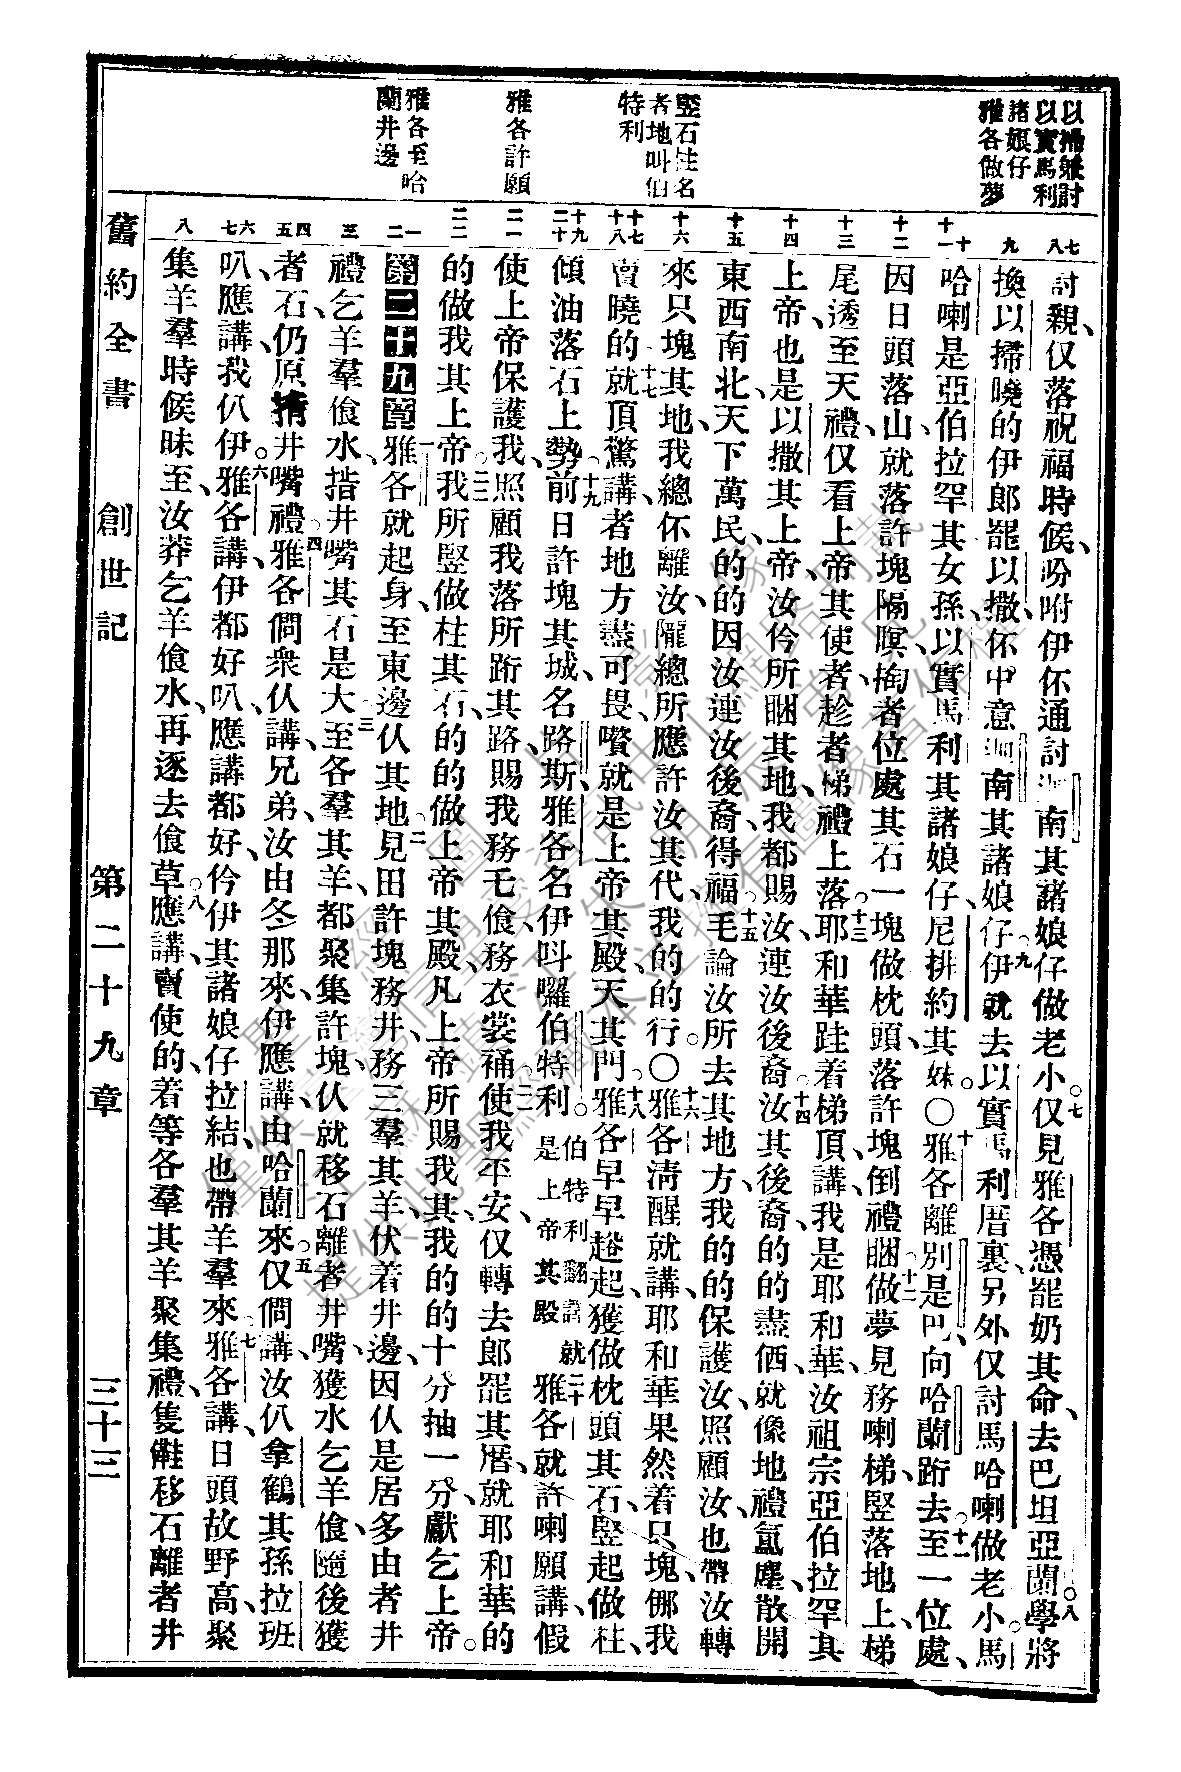 以掃娶討
以實馬利
諸娘仔
雅各做夢
竪石柱名
者地叫伯
特利
雅各許願
雅各至哈
蘭井邊
討親、仅落祝福時候、吩咐伊伓通討南其諸娘仔做老小。七仅見雅各憑罷奶其命、去巴坦亞蘭。八學將
換以掃曉的伊郎罷以撒、伓中意南其諸娘仔。九伊就去以實馬利厝裏、另外仅討馬哈喇做老小。馬
哈喇是亞伯拉罕其女孫、以實馬利其諸娘仔、尼排約其妹。〇十雅各離別是巴、向哈蘭跨去。十一至一位處、
因日頭落山、就落許塊隔暝、掏者位處其石一塊做枕頭、落許塊倒禮睏。十二做夢見務喇梯、竪落地上、梯
尾透至天禮、仅看上帝其使者、趁者梯禮上落。十三耶和華跬着梯頂講、我是耶和華、汝祖宗亞伯拉罕其
上帝、也是以撒其上帝、汝仱所睏其地、我都賜汝、連汝後裔。十四汝其後裔的的盡価、就像地禮氳塵、散開
東西南北、天下萬民的的因汝連汝後裔得福。十五毛論汝所去其地方、我的的保護汝、照顧汝、也帶汝轉
來只塊其地、我總伓離汝、隴總所應許汝其代、我的的行。〇十六雅各淸醒就講、耶和華果然着只塊、倻我
賣曉的。十七就頂驚講、者地方盡可畏、嚽就是上帝其殿、天其門。十八雅各早早趖起、獲做枕頭其石、竪起做柱、
傾油落石上勢。十九前日許塊其城、名路斯、雅各名伊叫囉伯特利。伯特利翻譯就是上帝其殿二十雅各就許喇願講、假
使上帝保護我、照顧我落所跨其路、賜我務乇食、務衣裳䙛、二一使我平安、仅轉去郎罷其厝、就耶和華的
的做我其上帝。二二我所竪做柱其石、的的做上帝其殿、凡上帝所賜我其、我的的十分抽一分、獻乞上帝。
第二十九章一雅各就起身、至東邊伩其地。二見田許塊務井、務三羣其羊伏着井邊、因伩是居多由者井
禮乞羊羣食水、揞井嘴其石是大。三至各羣其羊都聚集許塊、伩就移石離者井嘴、獲水乞羊食、隨後獲
者石仍原揞井嘴禮。四雅各問衆伩講、兄弟、汝由冬那來、伊應講、由哈蘭來。五仅問講、汝仈拿鶴其孫拉班
叭、應講、我仈伊。六雅各講、伊都好叭、應講、都好、仱伊其諸娘仔拉結、也帶羊羣來。七雅各講、日頭故野高、聚
集羊羣時候昧至、汝莽乞羊食水、再逐去食草。八應講、賣使的、着等各羣其羊聚集禮、隻㒰移石離者井
舊約全書　創世記　第二十九章　三十三